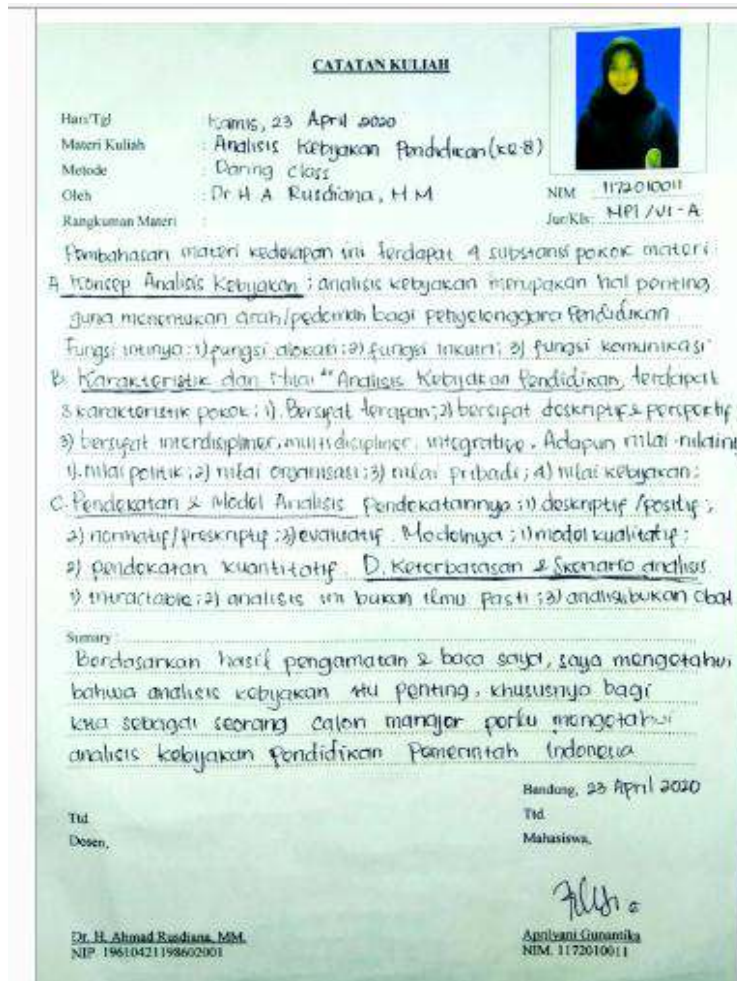 CATATAN KULIAH
Hari/Tgl : Kamis, 23 April 2020
Materi Kuliah : Analisis Kebijakan Pendidikan (ke-8)
Metode : Daring class
Oleh : Dr H A Rusdiana, H M
NIM 1172010011
Rangkuman Materi :
Jur/Kls: MPI / VI - A
Pembahasan materi kedelapan ini terdapat 4 substansi pokok materi:
A. Konsep Analisis Kebijakan ; analisis kebijakan merupakan hal penting
guna menentukan arah/pedoman bagi penyelenggara Pendidikan
Fungsi intinya: 1) fungsi alokasi; 2) fungsi inkuiri; 3) fungsi komunikasi
B. Karakteristik dan Nilai" Analisis Kebijakan Pendidikan, terdapat
3 karakteristik pokok; 1). Bersifat terapan; 2) bersifat deskriptif &
3) bersifat interdisipliner, multidisipliner, integrative. Adapun nilai-nilainy
1). nilai politik; 2) nilai organisasi; 3) nilai pribadi; 4) nilai kebijakan;
C. Pendekatan & Model Analisis Pendekatannya; 1) deskriptif /positif;
2) normatif/preskriptif; 3) evaluatif. Modelnya; 1) model kualitatif;
2) pendekatan kuantitatif. D. Keterbatasan & Skenario analisis
1) intractable; 2) analisis ini bukan ilmu pasti; 3) analisis bukan obat
Sumary :
Berdasarkan hasil pengamatan & baca saya, saya mengetahui
bahwa analisis kebijakan itu penting, khususnya bagi
kita sebagai seorang calon manajer perlu mengetahui
analisis kebijakan Pendidikan Pemerintah Indonesia
Bandung, 23 April 2020
Ttd
Ttd.
Dosen,
Mahasiswa,
Dr. H. Ahmad Rusdiana, MM.
Aprilyani Gunantika
NIP 19610421198602001
NIM. 1172010011